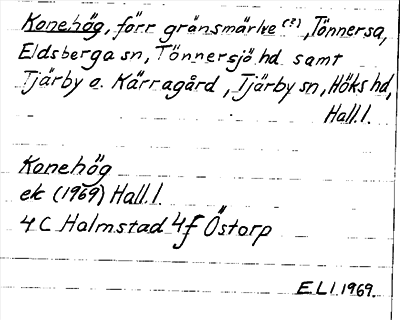 Konehög, förr gränsmärke (?), Tönnersa,
Eldsberga sn, Tönnersjö hd samt
Tjärby o. Kärragård, Tjärby sn, Höks hd,
Hall. l.
Konehög
ek (1969) Hall. l.
4 C Halmstad 4f Östorp
E.L.I. 1969.